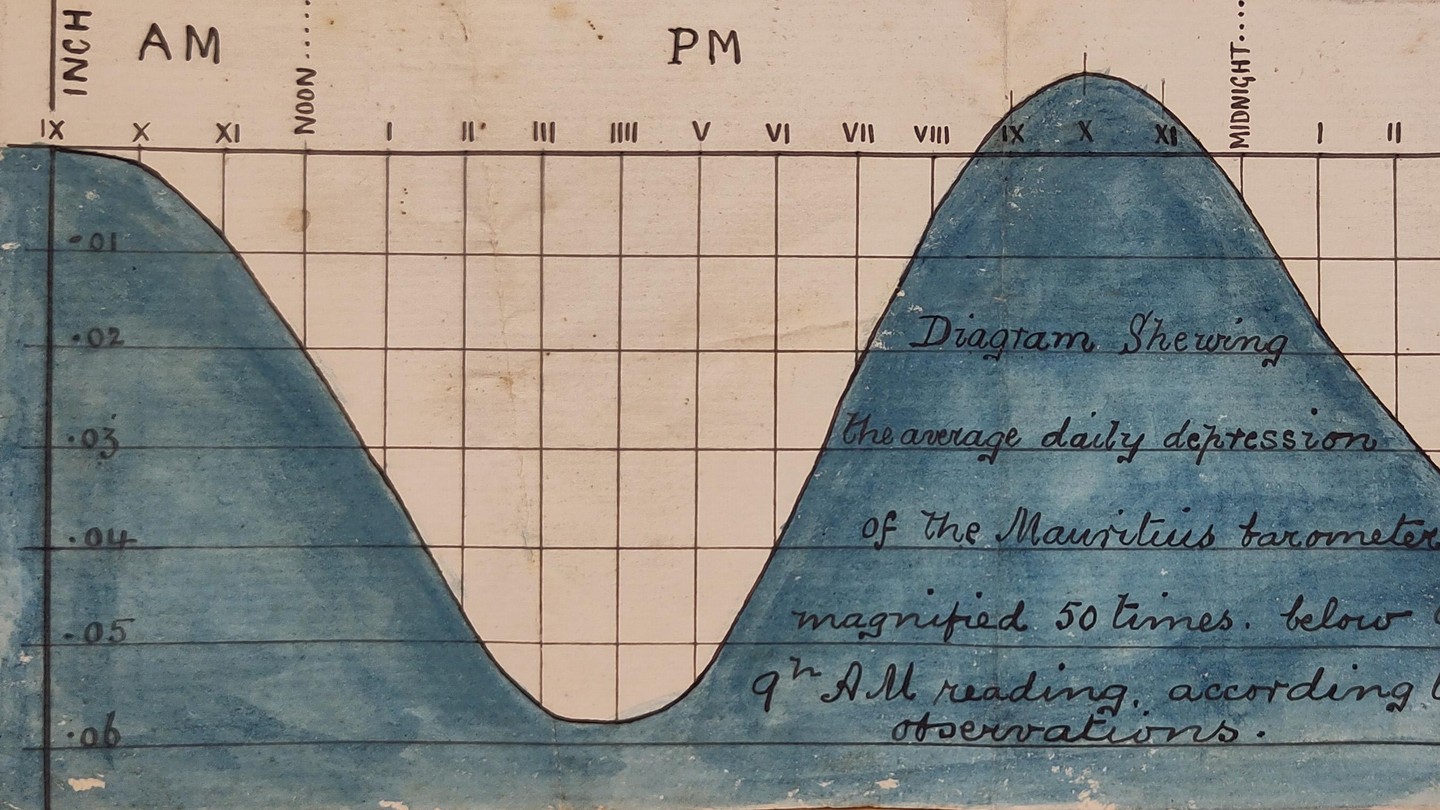 INCH
AM
NOON....
PM
MIDNIGHT....
IX X XI I II III IIII V VI VII VIII IX X XI I II
.01
.02
.03
.04
.05
.06
Diagram Shewing
the average daily depression
of the Mauritius barometer
magnified 50 times. below
9h AM reading, according
observations.